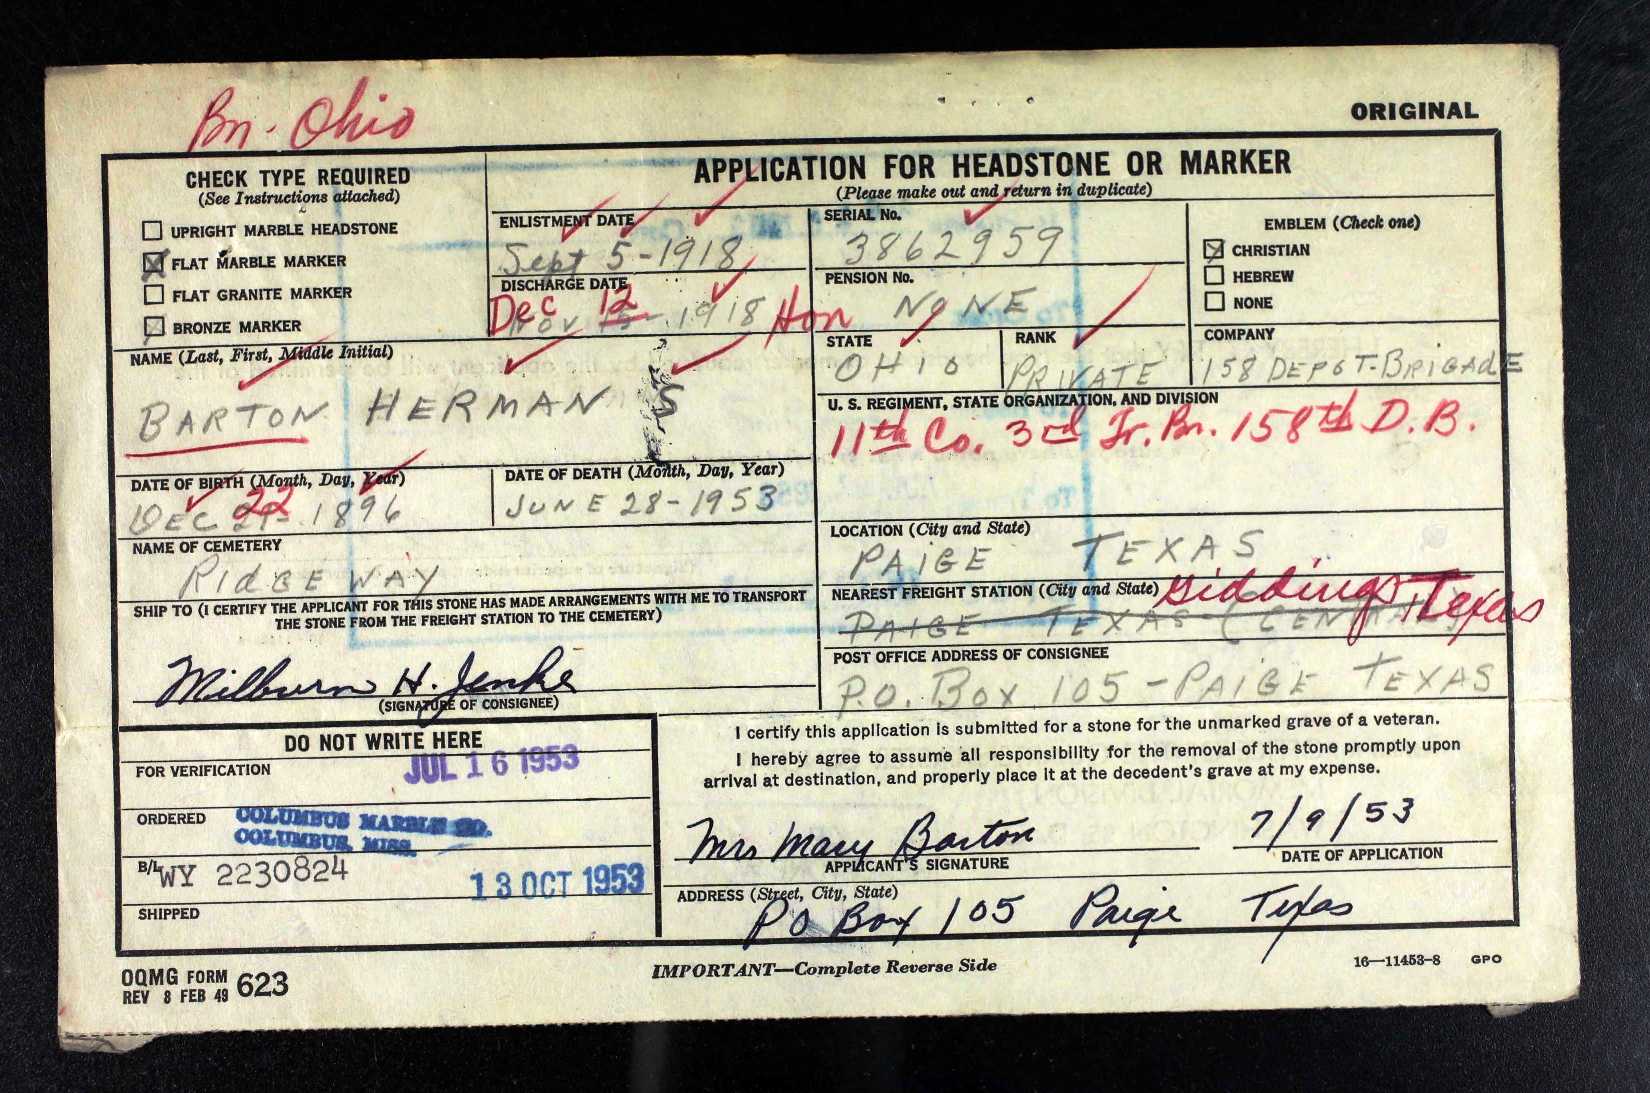 Bn. Ohio
ORIGINAL
CHECK TYPE REQUIRED
(See Instructions attached)
UPRIGHT MARBLE HEADSTONE
FLAT MARBLE MARKER
FLAT GRANITE MARKER
BRONZE MARKER
APPLICATION FOR HEADSTONE OR MARKER
(Please make out and return in duplicate)
ENLISTMENT DATE
Sept 5-1918
DISCHARGE DATE
Dec 12
Nov 1918 Hon
SERIAL No.
3862959
PENSION No.
NONE
EMBLEM (Check one)
CHRISTIAN
HEBREW
NONE
STATE
OHIO
RANK
PRIVATE
COMPANY
158 DEPOT-BRIGADE
NAME (Last, First, Middle Initial)
BARTON HERMAN S
U. S. REGIMENT, STATE ORGANIZATION, AND DIVISION
11th Co. 3rd Tr. Bn. 158th D.B.
DATE OF BIRTH (Month, Day, Year)
DEC 22 1896
DATE OF DEATH (Month, Day, Year)
JUNE 28-1953
NAME OF CEMETERY
RIDGEWAY
LOCATION (City and State)
PAIGE TEXAS
SHIP TO (I CERTIFY THE APPLICANT FOR THIS STONE HAS MADE ARRANGEMENTS WITH ME TO TRANSPORT
THE STONE FROM THE FREIGHT STATION TO THE CEMETERY)
Milburn H. Jenke
(SIGNATURE OF CONSIGNEE)
NEAREST FREIGHT STATION (City and State) Giddings, Texas
PAIGE TEXAS
POST OFFICE ADDRESS OF CONSIGNEE
P.O. BOX 105-PAIGE TEXAS
DO NOT WRITE HERE
FOR VERIFICATION
JUL 16 1953
ORDERED
COLUMBUS MARBLE CO.
COLUMBUS, MISS.
B/L WY 2230824
13 OCT 1953
SHIPPED
I certify this application is submitted for a stone for the unmarked grave of a veteran.
I hereby agree to assume all responsibility for the removal of the stone promptly upon
arrival at destination, and properly place it at the decedent's grave at my expense.
Mrs Mary Barton
APPLICANT'S SIGNATURE
7/9/53
DATE OF APPLICATION
ADDRESS (Street, City, State)
PO Box 105 Paige Texas
OQMG FORM 623
REV 8 FEB 49
IMPORTANT—Complete Reverse Side
16—11453-8 GPO